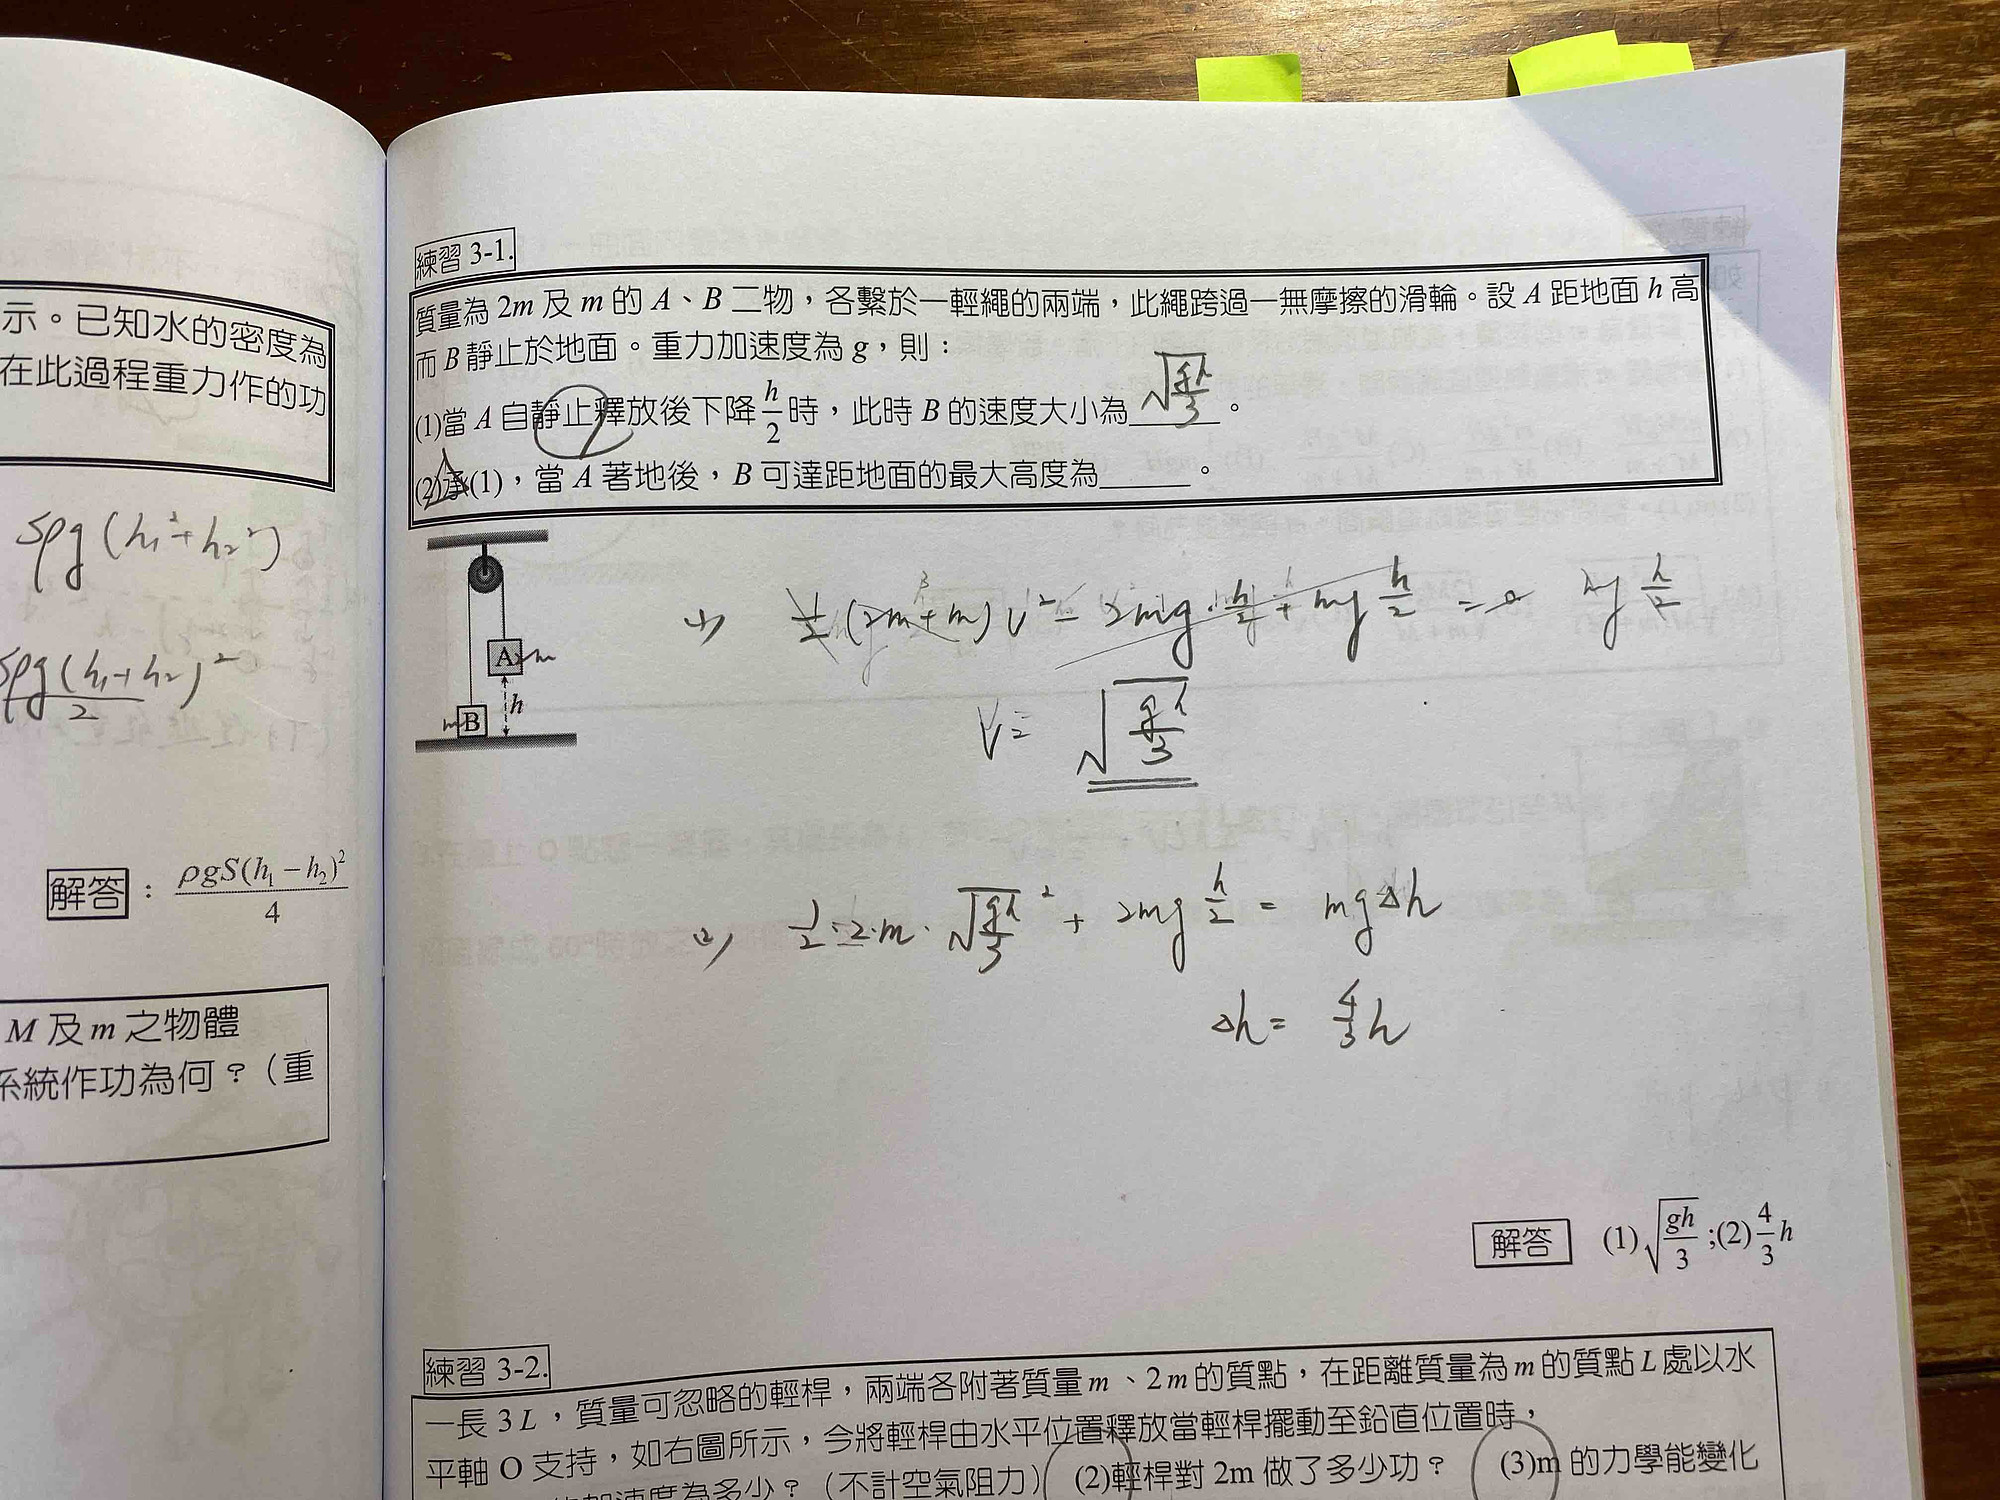 示。已知水的密度為
在此過程重力作的功
Spg(h₁²+h₂²)
Spg(h₁+h₂)²
2
解答：ρgS(h₁−h₂)²/4
M 及 m 之物體
系統作功為何？（重
練習 3-1.
質量為 2m 及 m 的 A、B 二物，各繫於一輕繩的兩端，此繩跨過一無摩擦的滑輪。設 A 距地面 h 高
而 B 靜止於地面。重力加速度為 g，則：
(1)當 A 自靜止釋放後下降 h/2 時，此時 B 的速度大小為 √(gh/3) 。
(2)承(1)，當 A 著地後，B 可達距地面的最大高度為______。
A 2m
h
m B
(1) ½(2m+m)V² − 2mg·h/2 + mg h/2 = 0 mg h/2
V = √(gh/3)
(2) 1/2·2·m·√(gh/3)² + 2mg h/2 = mgΔh
Δh = 4/3 h
解答 (1)√(gh/3) ;(2) 4/3 h
練習 3-2.
一長 3L，質量可忽略的輕桿，兩端各附著質量 m、2m 的質點，在距離質量為 m 的質點 L 處以水
平軸 O 支持，如右圖所示，今將輕桿由水平位置釋放當輕桿擺動至鉛直位置時，
加速度為多少？（不計空氣阻力） (2)輕桿對 2m 做了多少功？ (3)m 的力學能變化